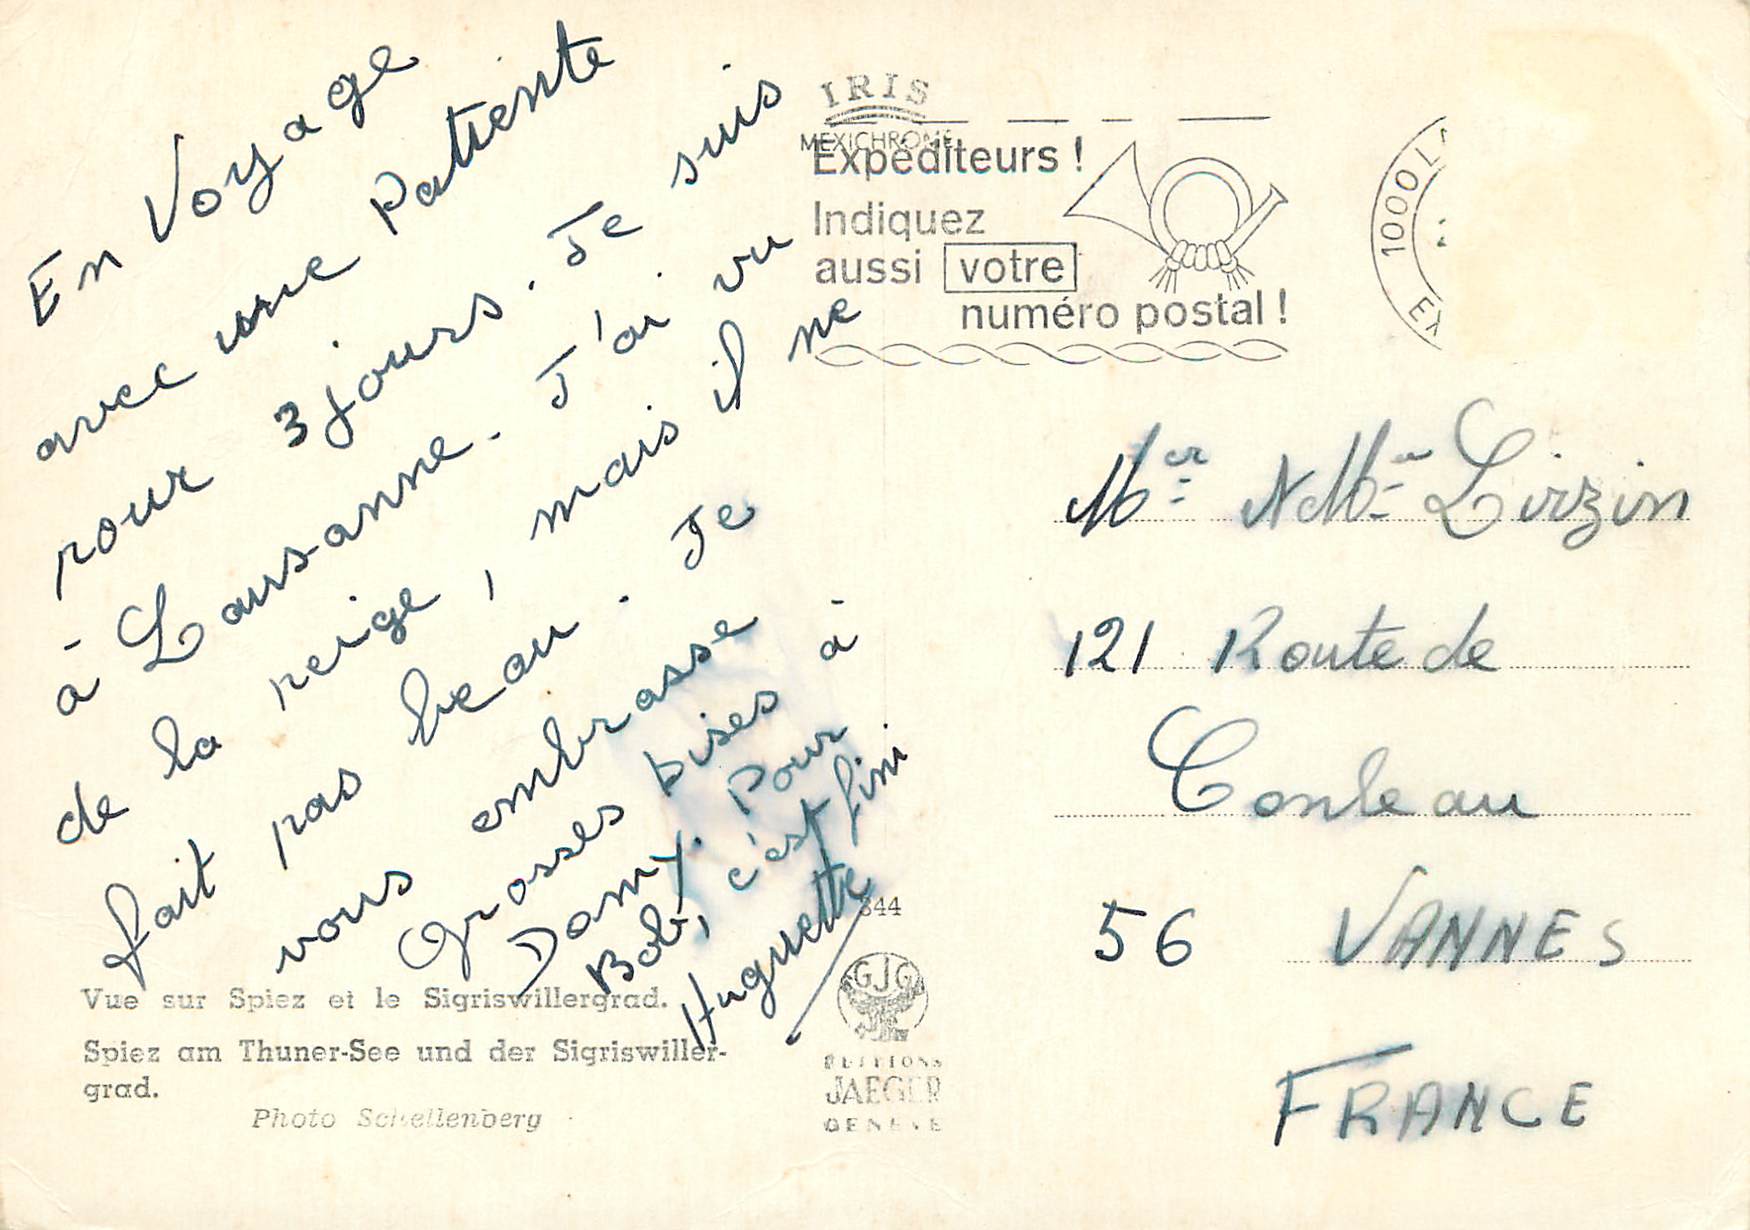 En Voyage
avec une Patiente
pour 3 jours. Je suis
à Lausanne. J'ai vu
de la neige, mais il ne
fait pas beau. Je
vous embrasse
Grosses bises à
Damy. Pour
Bob, c'est fini
Huguette
IRIS
MEXICHROME
Expéditeurs !
Indiquez
aussi votre
numéro postal !
1000 L
EX
Mer & Me Lirzin
121 Route de
Conleau
56 VANNES
FRANCE
844
GJG
EDITIONS
JAEGER
GENEVE
Vue sur Spiez et le Sigriswillergrad.
Spiez am Thuner-See und der Sigriswiller-
grad.
Photo Schellenberg